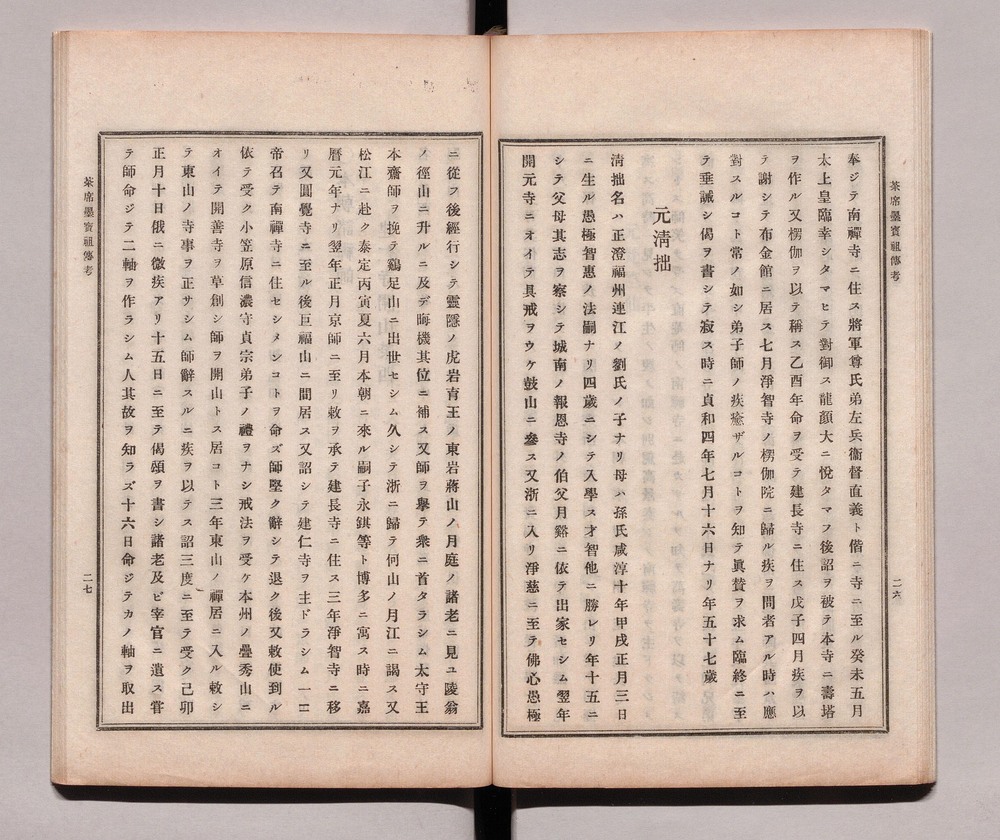 茶席墨寶祖傳考
奉ジテ南禪寺ニ住ス將軍尊氏弟左兵衞督直義ト偕ニ寺ニ至ル癸未五月
太上皇臨幸シタマヒテ對御ス龍顏大ニ悅タマフ後詔ヲ被テ本寺ニ壽塔
ヲ作ル又楞伽ヲ以テ稱ス乙酉年命ヲ受テ建長寺ニ住ス戊子四月疾ヲ以
テ謝シテ布金館ニ居ス七月淨智寺ノ楞伽院ニ歸ル疾ヲ問者アル時ハ應
對スルコト常ノ如シ弟子師ノ疾癒ザルコトヲ知テ眞賛ヲ求ム臨終ニ至
テ垂誡シ偈ヲ書シテ寂ス時ニ貞和四年七月十六日ナリ年五十七歲
元淸拙
淸拙名ハ正澄福州連江ノ劉氏ノ子ナリ母ハ孫氏咸淳十年甲戌正月三日
ニ生ル愚極智惠ノ法嗣ナリ四歲ニシテ入學ス才智他ニ勝レリ年十五ニ
シテ父母其志ヲ察シテ城南ノ報恩寺ノ伯父月谿ニ依テ出家セシム翌年
開元寺ニオイテ具戒ヲウケ鼓山ニ參ス又浙ニ入リ淨慈ニ至テ佛心愚極
二六
ニ從フ後經行シテ靈隱ノ虎岩育王ノ東岩蔣山ノ月庭ノ諸老ニ見ユ陵翁
ノ徑山ニ升ルニ及デ晦機其位ニ補ス又師ヲ擧テ衆ニ首タラシム太守王
本齋師ヲ挽テ鷄足山ニ出世セシム久シテ浙ニ歸テ何山ノ月江ニ謁ス又
松江ニ赴ク泰定丙寅夏六月本朝ニ來ル嗣子永錤等ト博多ニ寓ス時ニ嘉
曆元年ナリ翌年正月京師ニ至リ敕ヲ承テ建長寺ニ住ス三年淨智寺ニ移
リ又圓覺寺ニ至ル後巨福山ニ間居ス又詔シテ建仁寺ヲ主ドラシム一日
帝召テ南禪寺ニ住セシメンコトヲ命ズ師堅ク辭シテ退ク後又敕使到ル
依テ受ク小笠原信濃守貞宗弟子ノ禮ヲナシ戒法ヲ受ケ本州ノ疊秀山ニ
オイテ開善寺ヲ草創シ師ヲ開山トス居コト三年東山ノ禪居ニ入ル敕シ
テ東山ノ寺事ヲ正サシム師辭スルニ疾ヲ以テス詔三度ニ至テ受ク己卯
正月十日俄ニ微疾アリ十五日ニ至テ偈頌ヲ書シ諸老及ビ宰官ニ遺ス嘗
テ師命ジテ二軸ヲ作ラシム人其故ヲ知ラズ十六日命ジテカノ軸ヲ取出
茶席墨寶祖傳考
二七